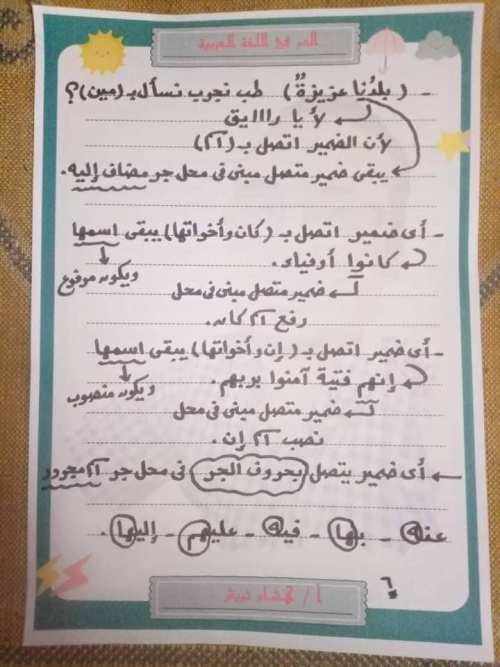 الجر في اللغة العربية
- (بلدُنا عزيزةٌ) طب نجرب نسأل بـ (مين)؟
لأ يا راااايق
لأن الضمير اتصل بـ (اسم)
يبقى ضمير متصل مبنى فى محل جر مضاف إليه.
- أى ضمير اتصل بـ (كان وأخواتها) يبقى اسمها
كانوا أوفياء.
ويكون مرفوع
ضمير متصل مبنى فى محل
رفع اسم كان.
- أى ضمير اتصل بـ (إن وأخواتها) يبقى اسمها
إنهم فتية آمنوا بربهم.
ويكون منصوب
ضمير متصل مبنى فى محل
نصب اسم إن.
أى ضمير يتصل بحروف الجر فى محل جر اسم مجرور
عنه - بها - فيه - عليهم - إليها.
٦
أ /